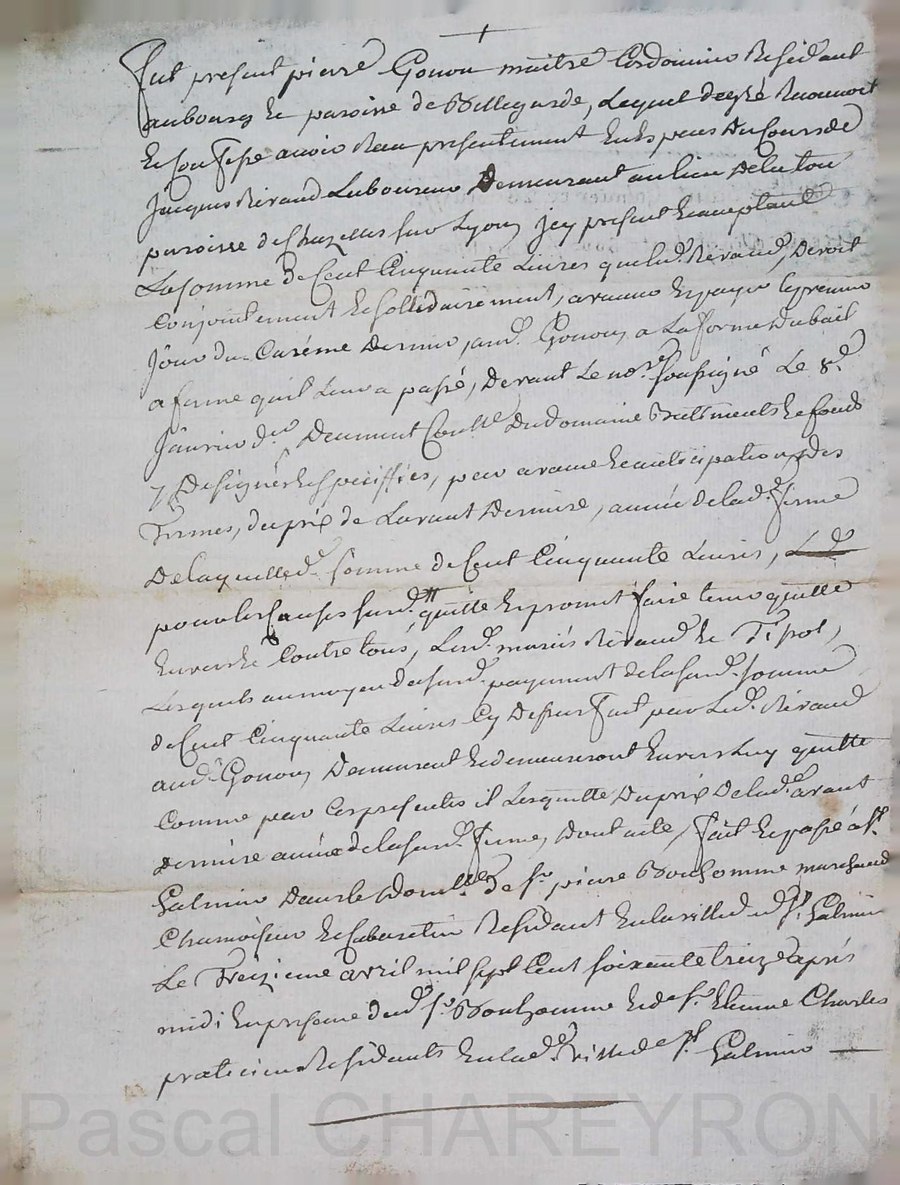 fut present pierre Gonon maitre Cordonnier Residant
au bourg et paroisse de Bellegarde, Lequel degré Reconnoit
et Confesse avoir Recu presentement en Especes du Cours de
Jacques Reraud Laboureur Demeurant au lieu De la tou
paroisse de Chazelles sur Lyon, Icy present et acceptant
La somme de Cent Cinquante Livres que led. Reraud, devoit
Conjointement et sollidairement, avancer et payer le premier
Jour du Careme dernier, aud. Gonon, a La forme du bail
a ferme qu'il Leur a passé, devant Le nore. soussigné Le 8e.
Janvier der. du domaine Battiments et fonds
y Designés et speciffiés, par avance et anticipation des
Termes, du prix de Lavant derniere, année de lad. ferme
De laquelle d. somme de Cent Cinquante Livres,
pour les Causes surd. quitte et promet faire tenir quitte
Envers et Contre tous, Lesd. mariés Reraud et
Lesquels au moyen du surd. payement de la surd. somme
de Cent Cinquante Livres Cy dessus fait par Led. Reraud
aud. Gonon, Demeurent et demeureront Envers Luy quitte
Comme par Ces presentes il Les quitte du prix de lad. avant
derniere année de la surd. ferme, dont acte, fait et passé a St.
Galmier dans le domille. de sr. pierre Bonhomme marchand
Chamoiseur et Cabaretier Residant En la ville dud. St. Galmier
Le Treizieme avril mil sept Cent soixante treize après
midi En presence dud. sr. Bonhomme et de sr. Etienne Charles
praticien Residants En lad. ville de St. Galmier
Pascal CHAREYRON